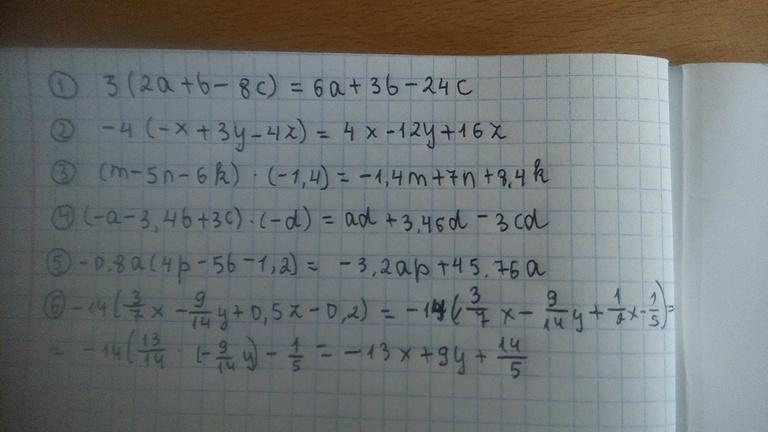 ① 3(2a+b-8c) = 6a+3b-24c
② -4(-x+3y-4z) = 4x-12y+16z
③ (m-5n-6k)·(-1,4) = -1,4m+7n+8,4k
④ (-a-3,4b+3c)·(-d) = ad+3,4bd-3cd
⑤ -0.8a(4p-5b-1,2) = -3,2ap+45.76a
⑥ -14(3/7x-9/14y+0,5x-0,2) = -14(3/7x-9/14y+1/2x-1/5)=
= -14(13/14·(-9/14y)-1/5 = -13x+9y+14/5